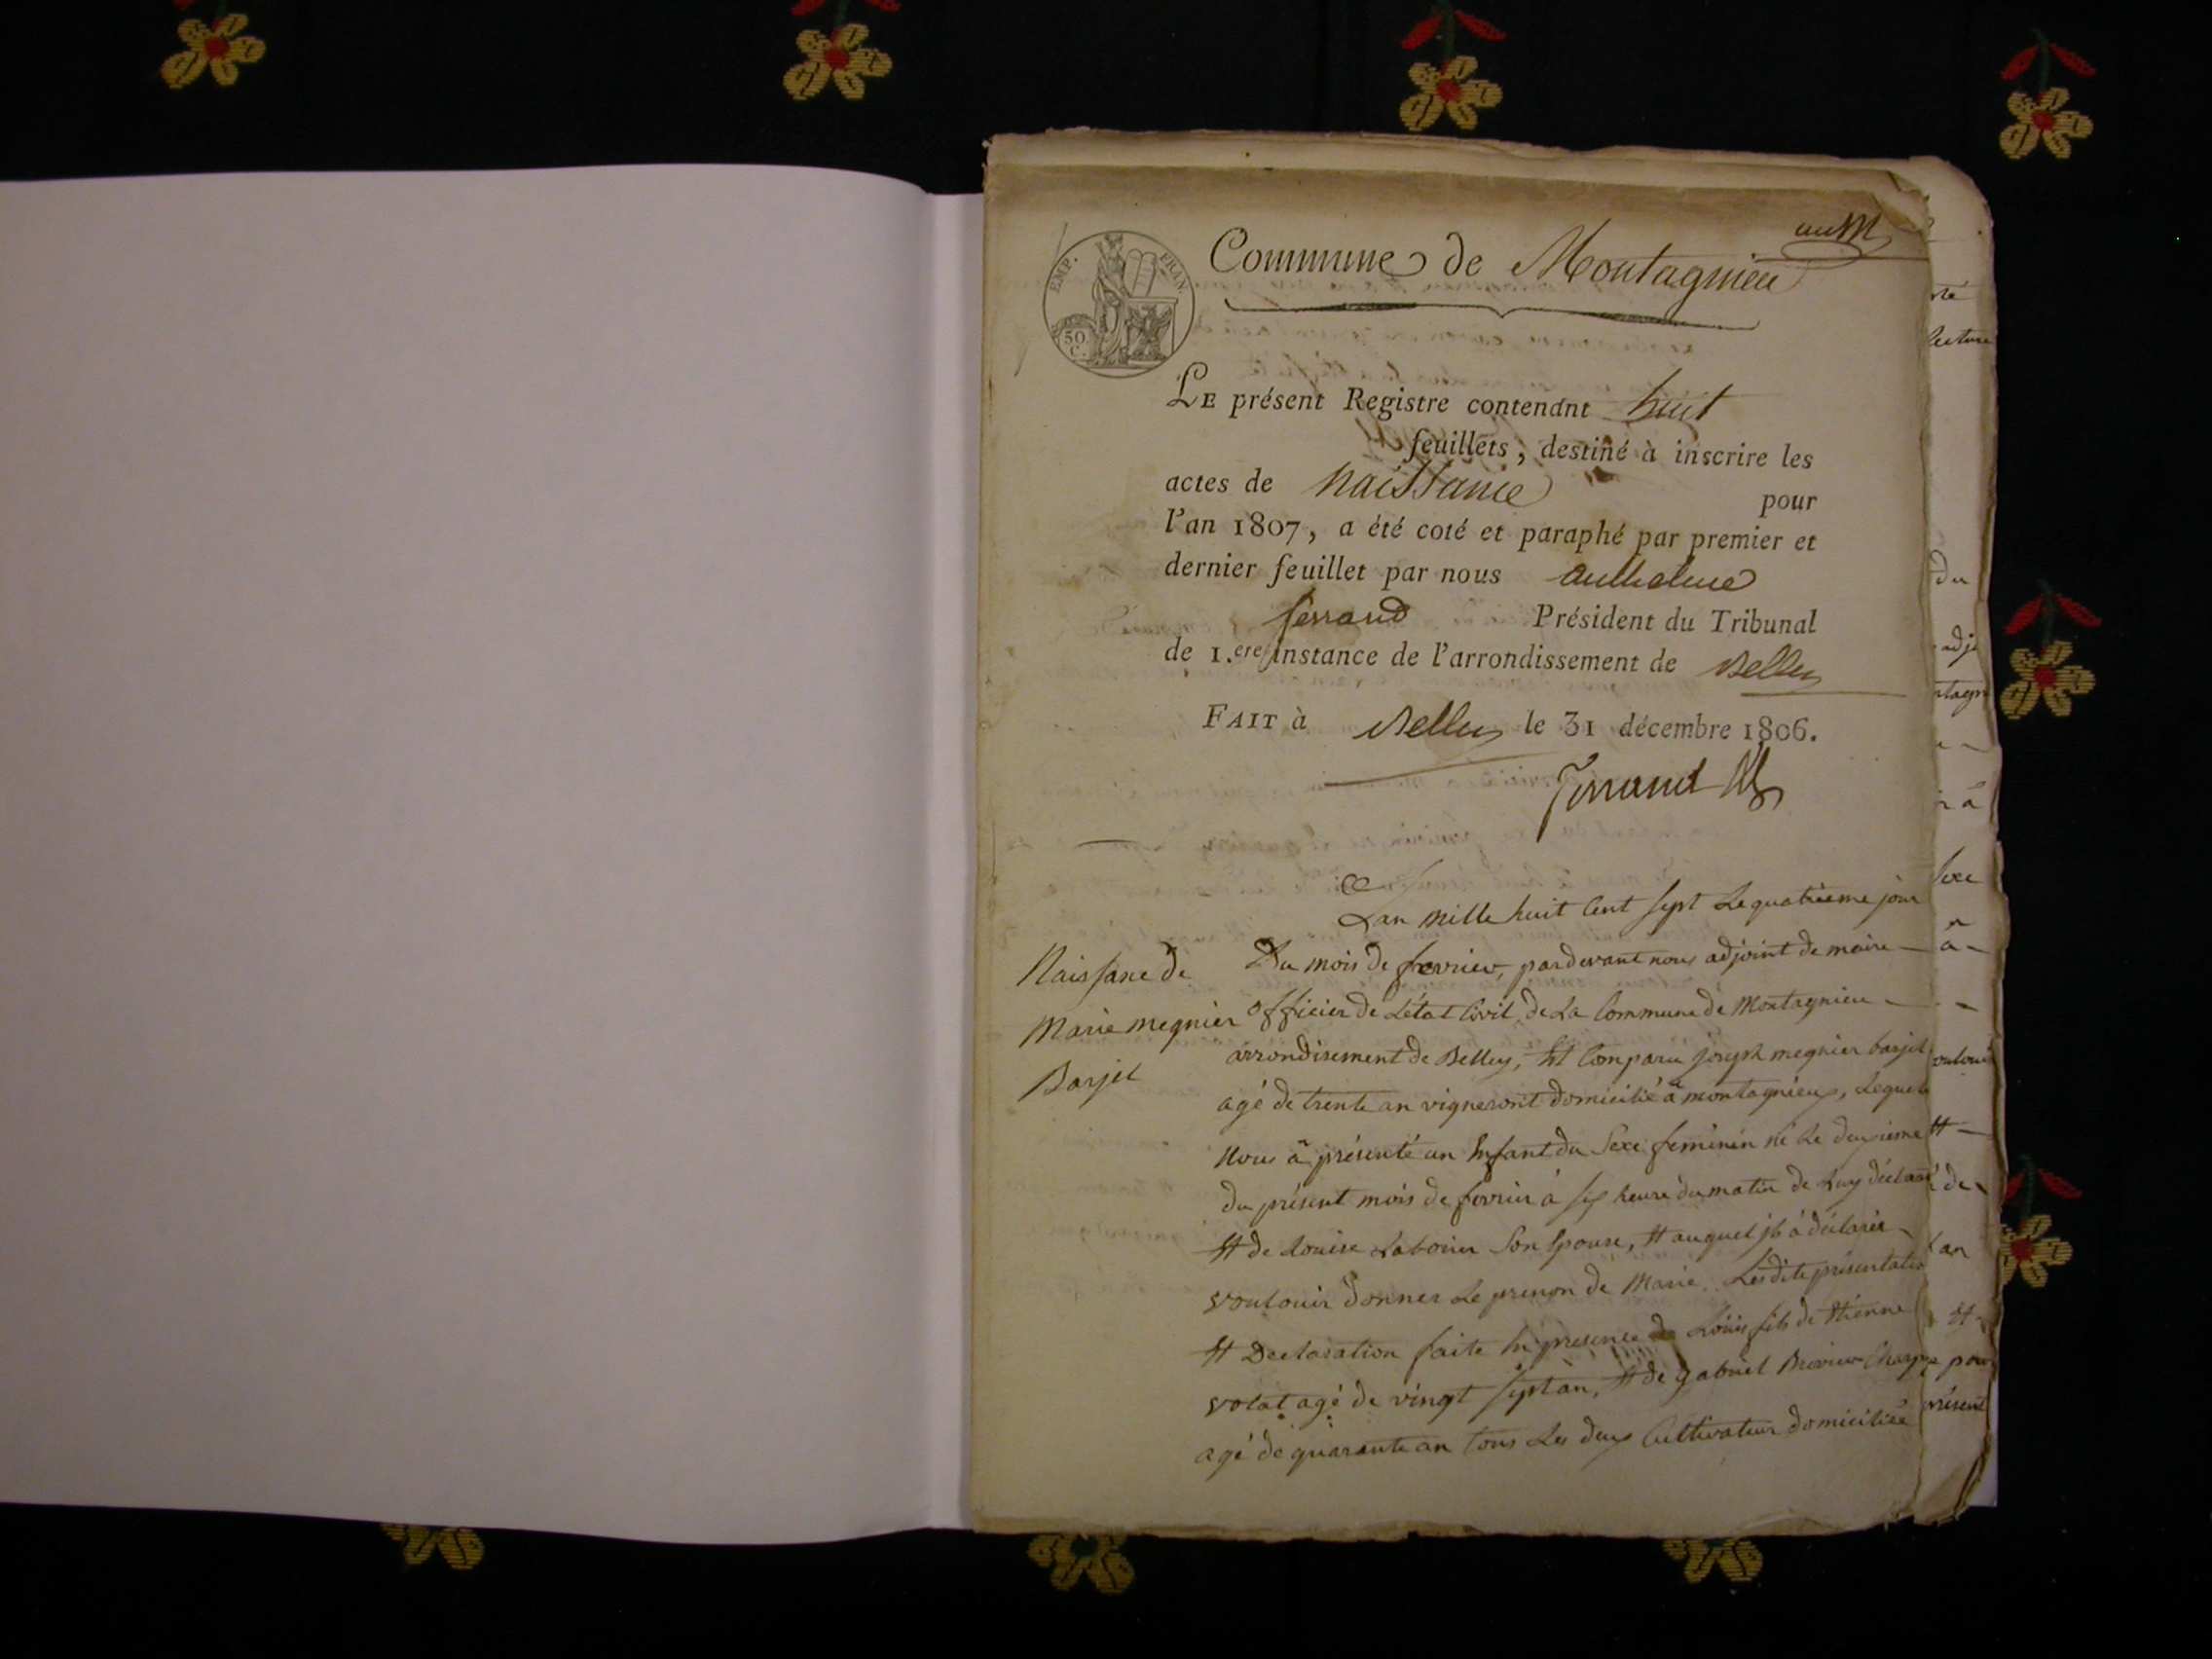 EMP. FRAN.
50
C.
Commune de Montagnieu
LE présent Registre contenant huit
feuillets, destiné à inscrire les
actes de naissance pour
l'an 1807, a été coté et paraphé par premier et
dernier feuillet par nous anthelme
ferrand Président du Tribunal
de 1.ere instance de l'arrondissement de Belley
FAIT à Belley le 31 décembre 1806.
Ferrand
Lan mille huit Cent sept Le quatrieme jour
Naissane de
Marie megnier
Barjet
Du mois de fevrier, pardevant nous adjoint de maire
officier de L'état Civil, de La Commune de Montagnieu
arrondisement de Belley, Et Comparu joseph megnier barjet
agé de trente an vigneront domicilié à montagnieu, Lequel
nous à présenté un Enfant du Sexe feminin né Le deuxieme
du présent mois de fevrier à six heure du matin de Luy déclarant
Et de Louise Son Epouse, Et auquel il à déclarer
vouloir donner Le prenon de Marie. Les dite présentation
Et Declaration faite En presence de Loüis fils de Etienne
volat agé de vingt sept an, Et de gabriel
agé de quarante an tous Les deux Cultivateur domiciliée
té
lecture
du
adj
ntagn
r à
sexe
à
vouloir
Et
é de
Lan
et
pour
présent